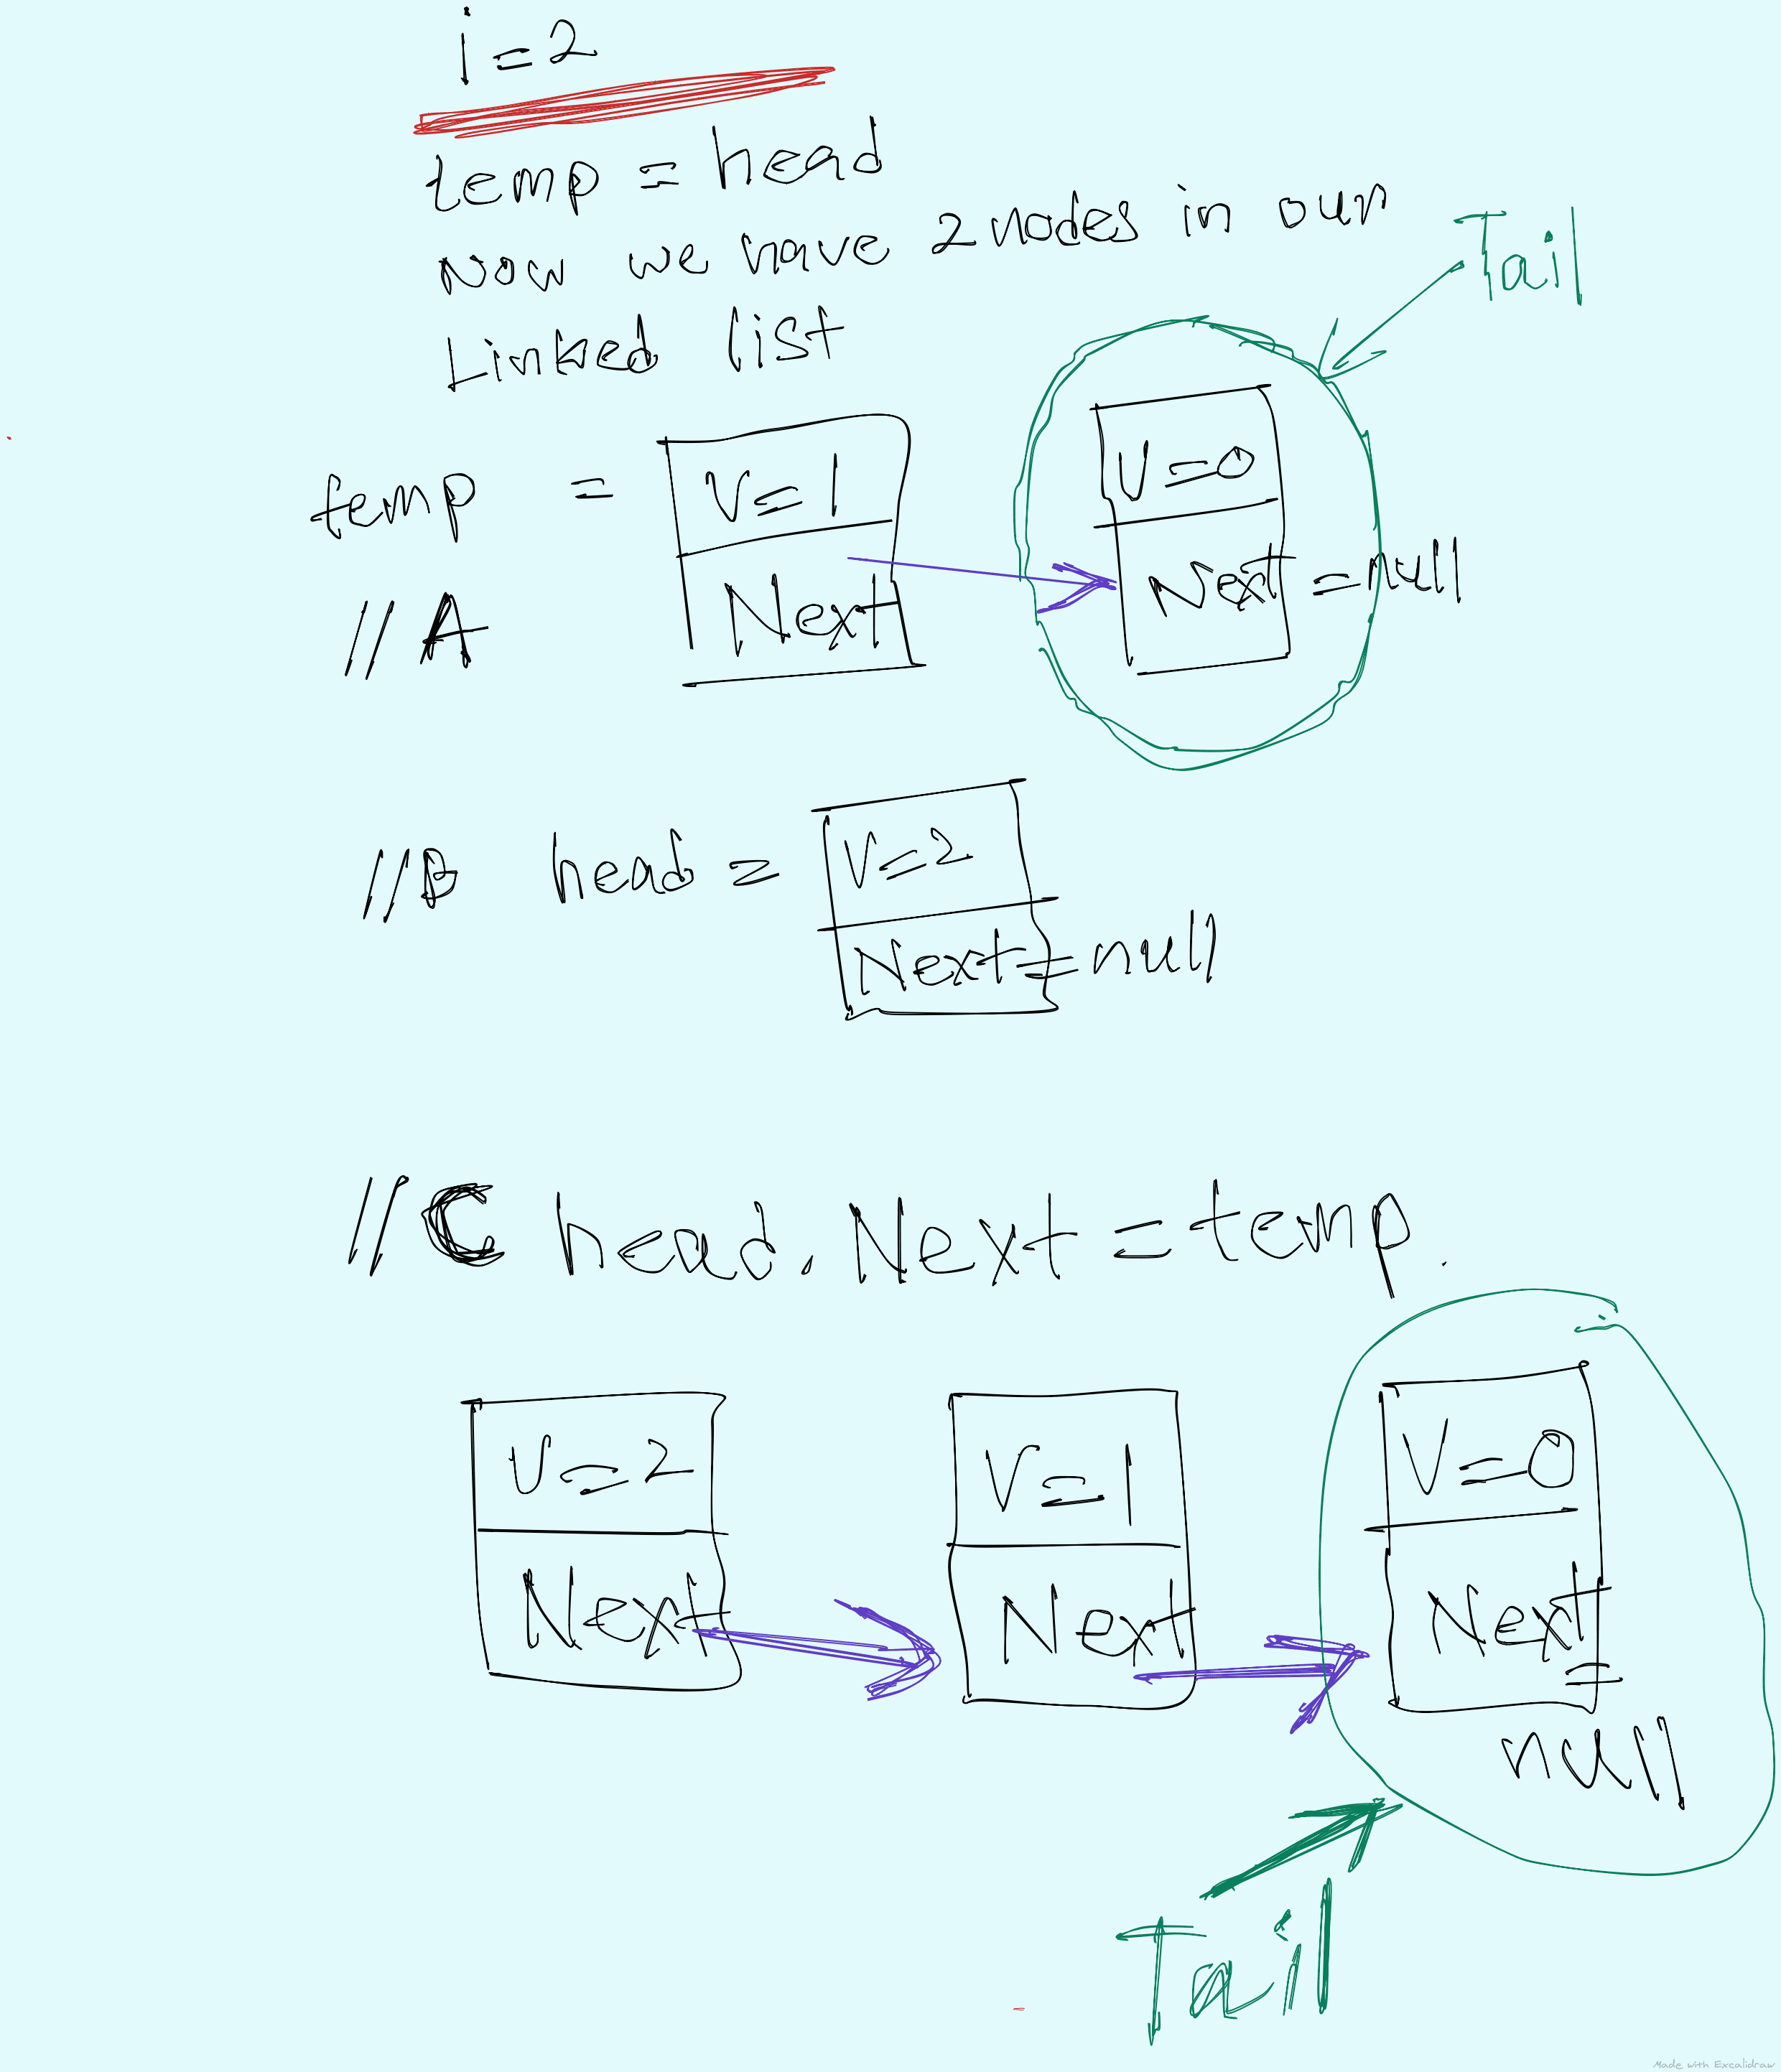 i=2
temp = head
Now we have 2 nodes in our
Linked list
Tail
temp = V=1 V=0
// A Next Next = null
//B head = V=2
Next = null
//C head.Next = temp.
V=2 V=1 V=0
Next Next Next =
null
Tail
Made with Excalidraw